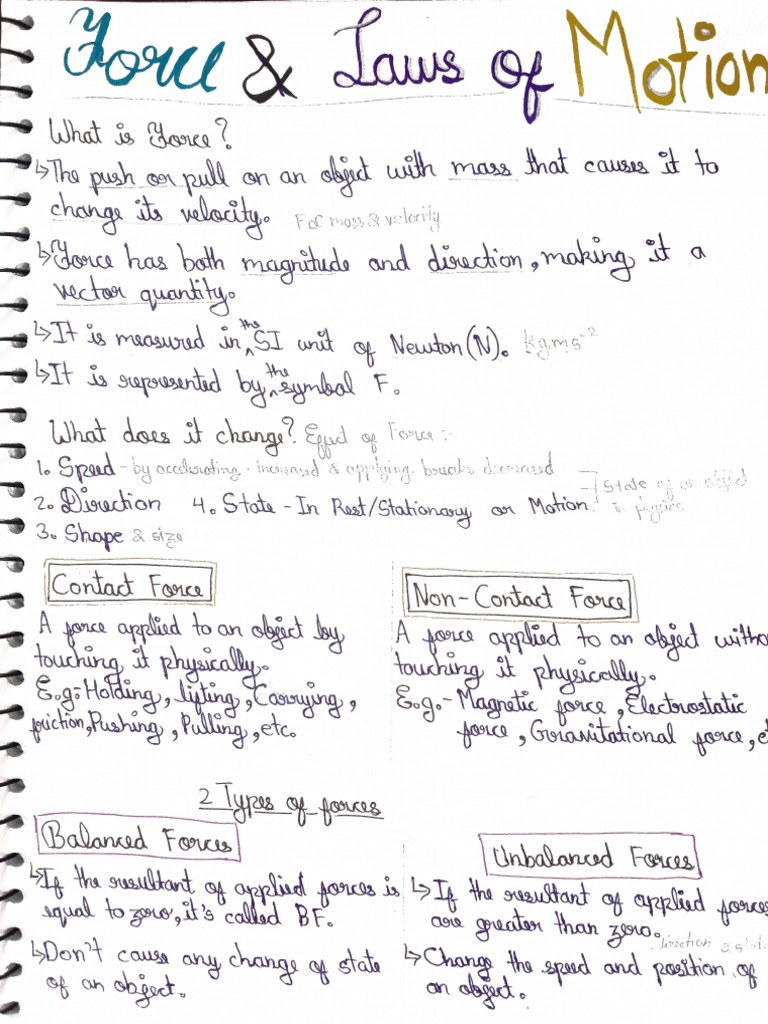 Force & Laws of Motion
What is Force?
↳The push or pull on an object with mass that causes it to
change its velocity. F∝ mass & velocity
↳Force has both magnitude and direction, making it a
vector quantity.
↳It is measured in ^the SI unit of Newton(N). kgms⁻²
↳It is represented by ^the symbol F.
What does it change? Effect of Force :-
1. Speed - by accelerating - increased & applying breaks decreased
2. Direction 4. State - In Rest/Stationary or Motion. State of an object
in physics
3. Shape & size
Contact Force
A force applied to an object by
touching it physically.
E.g:- Holding, lifting, Carrying,
friction, Pushing, Pulling, etc.
Non-Contact Force
A force applied to an object witho
touching it physically.
E.g.- Magnetic force, Electrostatic
force, Gravitational force, e
2 Types of forces
Balanced Forces
↳If the resultant of applied forces is
equal to zero, it's called BF.
↳Don't cause any change of state
of an object.
Unbalanced Forces
↳If the resultant of applied forces
are greater than zero.
direction & state
↳Change the speed and position of
an object.